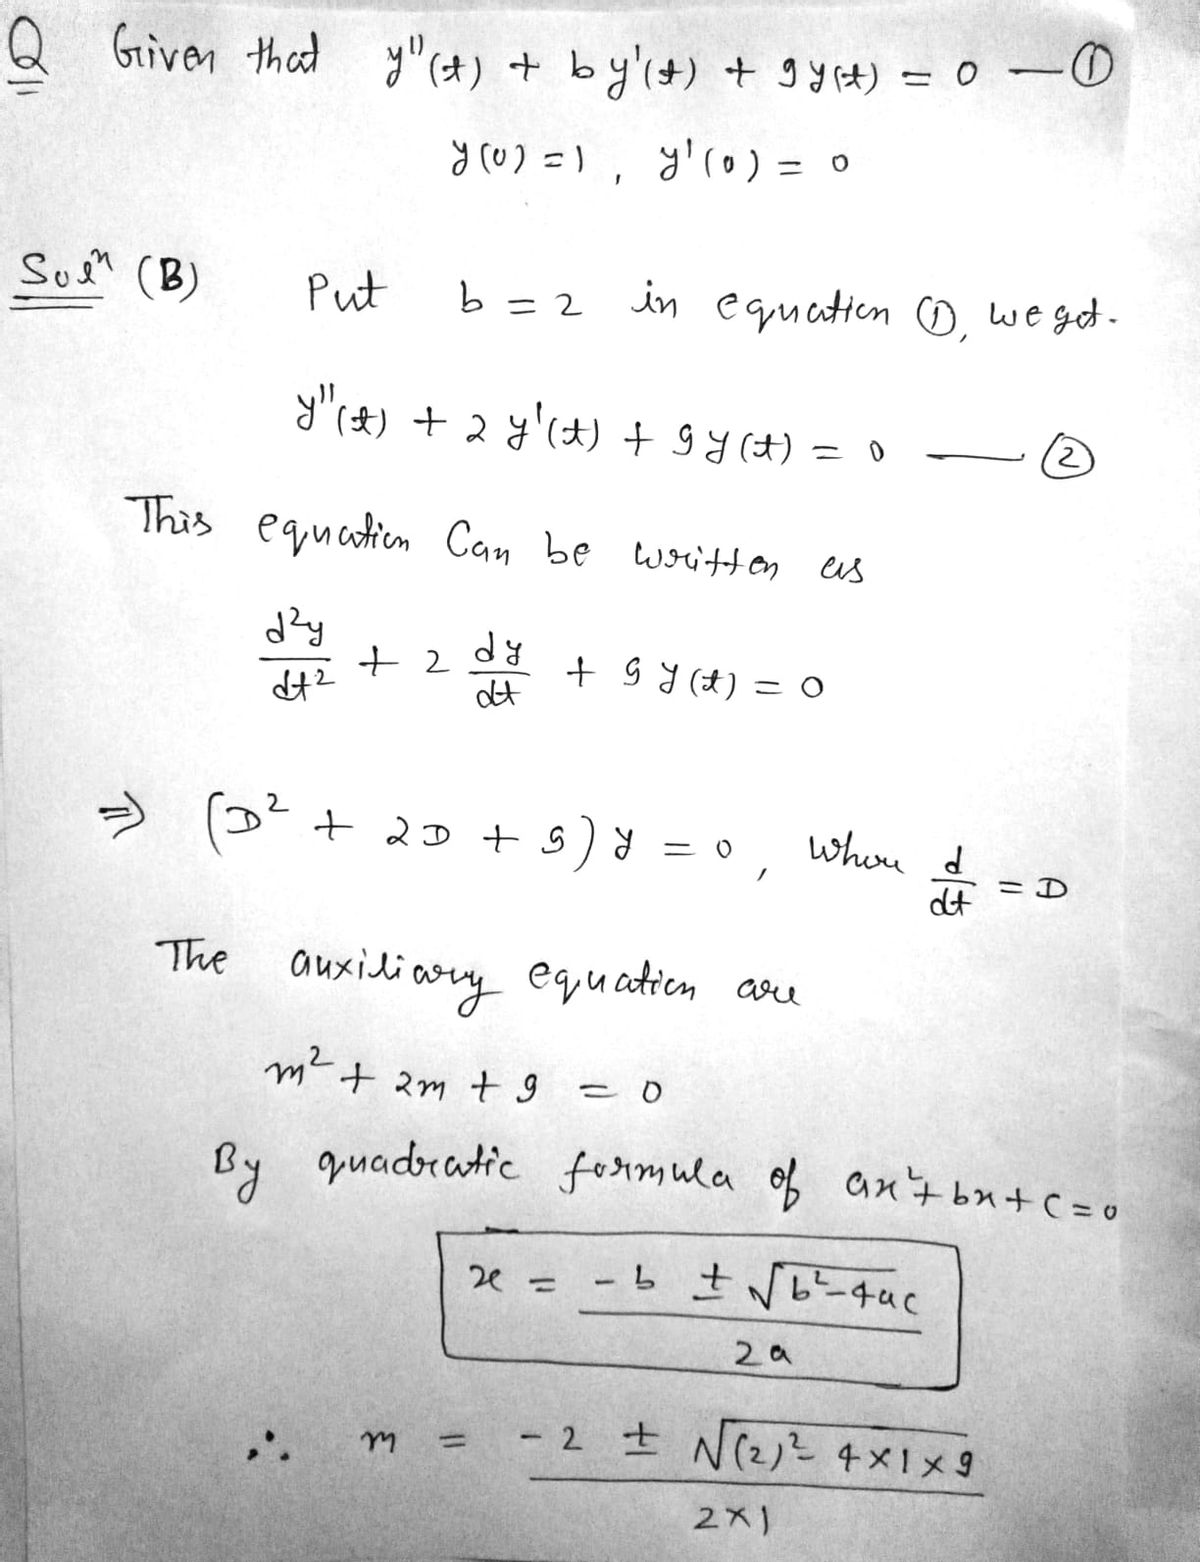 Q Given that y''(t) + by'(t) + 9y(t) = 0 — ①
y(0) = 1, y'(0) = 0
Solⁿ (B) Put b = 2 in equation ①, we get.
y''(t) + 2y'(t) + 9y(t) = 0 — ②
This equation Can be written as
d²y/dt² + 2 dy/dt + 9y(t) = 0
⇒ (D² + 2D + 9)y = 0, where d/dt = D
The auxiliary equation are
m² + 2m + 9 = 0
By quadratic formula of ax² + bx + c = 0
x = (-b ± √(b²-4ac))/2a
∴ m = (-2 ± √((2)² - 4×1×9))/2×1